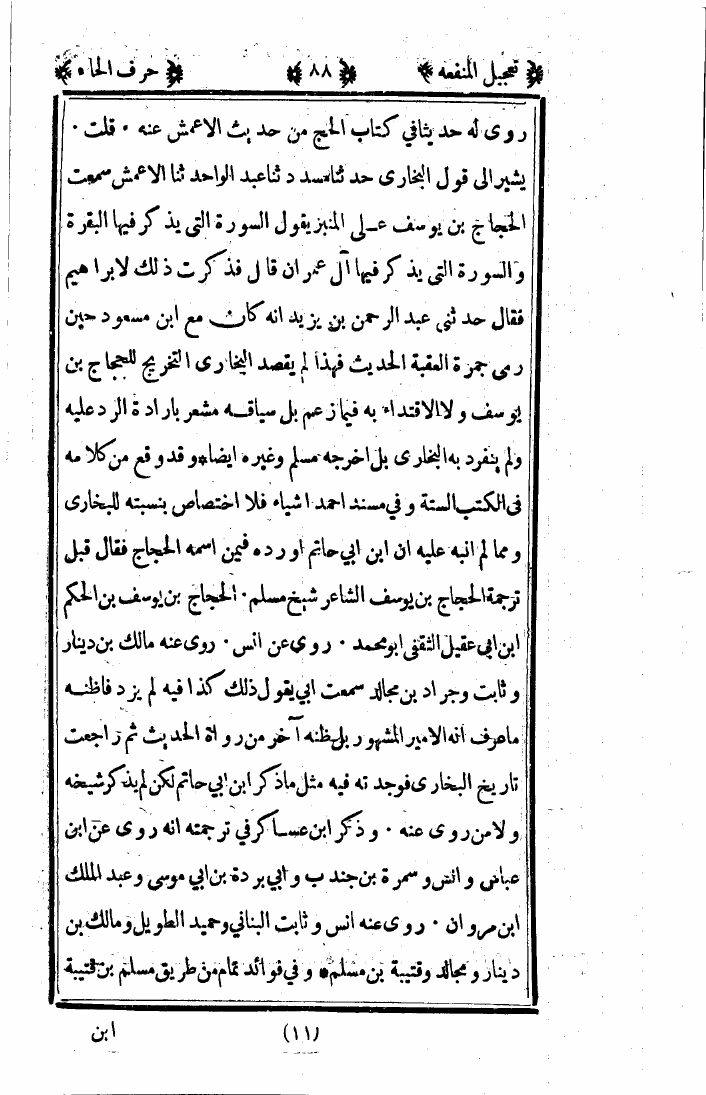 تعجيل المنفعه ﴿٨٨﴾ حرف الحاء
روى له حديثا في كتاب الحج من حديث الاعمش عنه ٠ قلت ٠
يشير الى قول البخارى حدثنا مسدد ثنا عبد الواحد ثنا الاعمش سمعت
الحجاج بن يوسف على المنبر يقول السورة التى يذكر فيها البقرة
والسورة التى يذكر فيها آل عمران قال فذكرت ذلك لابراهيم
فقال حدثنى عبد الرحمن بن يزيد انه كان مع ابن مسعود حين
رمى جمرة العقبة الحديث فهذا لم يقصد البخارى التخريج للحجاج بن
يوسف ولا الاقتداء به فيما زعم بل سياقه مشعر بارادة الرد عليه
ولم ينفرد به البخارى بل اخرجه مسلم وغيره ايضا * وقد وقع من كلامه
فى الكتب الستة و في مسند احمد اشياء فلا اختصاص بنسبته للبخارى
ومما لم انبه عليه ان ابن ابي حاتم اورده فيمن اسمه الحجاج فقال قبل
ترجمة الحجاج بن يوسف الشاعر شيخ مسلم ٠ الحجاج بن يوسف بن الحكم
ابن ابي عقيل الثقفى ابو محمد ٠ روى عن انس ٠ روى عنه مالك بن دينار
و ثابت وجراد بن مجالد سمعت ابي يقول ذلك كذا فيه لم يزد فاظنه
ما عرف انه الامير المشهور بل ظنه آخر من رواة الحديث ثم راجعت
تاريخ البخارى فوجدته فيه مثل ما ذكر ابن ابي حاتم لكن لم يذكر شيخه
ولا من روى عنه ٠ وذكر ابن عساكر في ترجمته انه روى عن ابن
عباس و انس و سمرة بن جندب و ابي بردة بن ابي موسى و عبد الملك
ابن مروان ٠ روى عنه انس و ثابت البناني وحميد الطويل و مالك بن
دينار و مجالد و قتيبة بن مسلم * و في فوائد تمام من طريق مسلم بن قتيبة
(١١) ابن